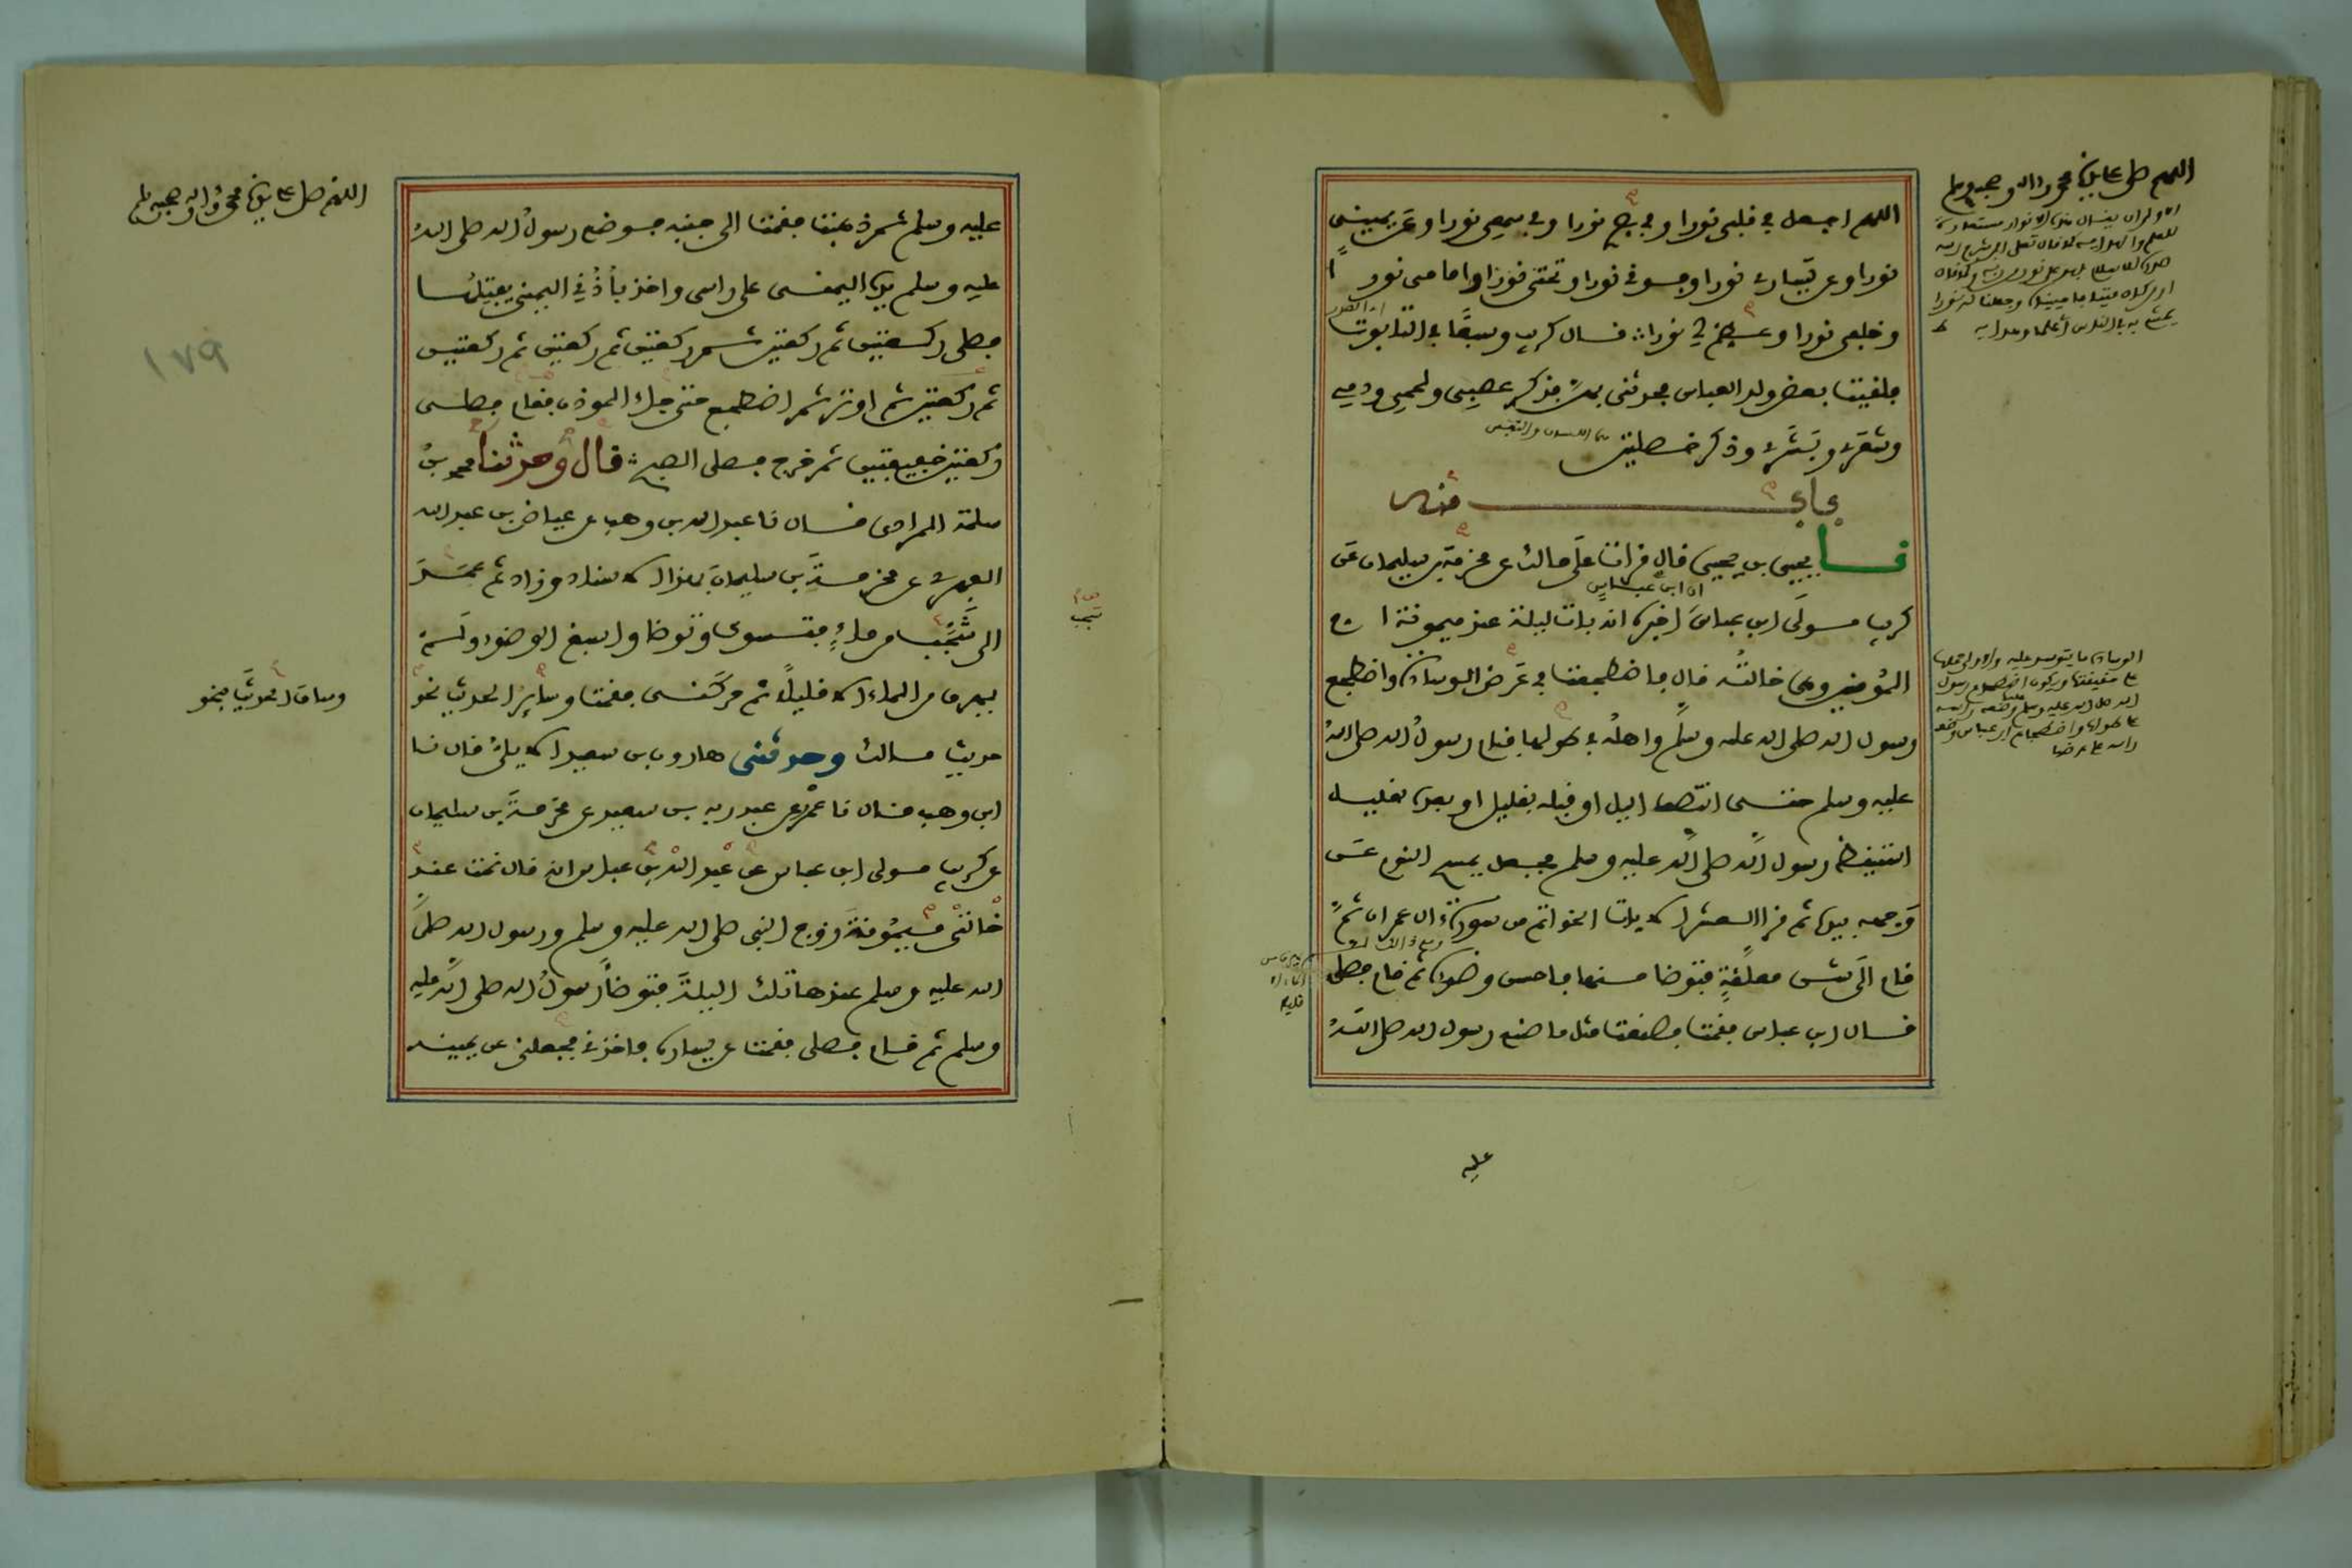 اللهم صل على سيدنا محمد واله وصحبه وسلم
اللهم اجعل في قلبي نورا وفي بصري نورا وفي سمعي نورا وعن يميني
نورا وعن يساري نورا وفوقي نورا وتحتي نورا وامامي نورا
وخلفي نورا وعظم لي نورا قال كريب وسبعا في التابوت
فلقيت بعض ولد العباس فحدثني بهن فذكر عصبي ولحمي ودمي
وشعري وبشري وذكر خصلتين
باب منه
نا يحيى بن يحيى قال قرات على مالك عن مخرمة بن سليمان عن
كريب مولى ابن عباس اخبره انه بات ليلة عند ميمونة ام
ان ابن عباس
المؤمنين وهي خالته قال فاضطجعت في عرض الوسادة واضطجع
رسول الله صلى الله عليه وسلم واهله في طولها فنام رسول الله صلى الله
عليه وسلم حتى انتصف اليل او قبله بقليل او بعده بقليل
استيقظ رسول الله صلى الله عليه وسلم فجعل يمسح النوم عن
وجهه بيده ثم قرا العشر الايات الخواتم من سورة ال عمران ثم
قام الى شن معلقة فتوضا منها فاحسن وضوءه ثم قام فصلى
قال ابن عباس فقمت فصنعت مثل ما صنع رسول الله صلى الله
عليه
اللهم صل على سيدنا محمد واله وصحبه وسلم
١٧٩
عليه وسلم ثم ذهبت فقمت الى جنبه فوضع رسول الله صلى الله
عليه وسلم يده اليمنى على راسي واخذ باذني اليمنى يفتلها
فصلى ركعتين ثم ركعتين ثم ركعتين ثم ركعتين ثم ركعتين
ثم ركعتين ثم اوتر ثم اضطجع حتى جاء الموذن فقام فصلى
ركعتين خفيفتين ثم خرج فصلى الصبح قال وحدثنا محمد بن
سلمة المرادي قال نا عبد الله بن وهب عن عياض بن عبد الله
الفهري عن مخرمة بن سليمان بهذا الاسناد وزاد ثم عمد
الى شجب من ماء فتسوك وتوضا واسبغ الوضوء ولم
يهرق من الماء الا قليلا ثم حركني فقمت وساير الحديث نحو
وساق الحديث بنحو
حديث مالك وحدثني هارون بن سعيد الايلي قال نا
ابن وهب قال نا عمرو عن عبد ربه بن سعيد عن مخرمة بن سليمان
عن كريب مولى ابن عباس عن عبد الله بن عباس انه قال نمت عند
خالتي ميمونة زوج النبي صلى الله عليه وسلم ورسول الله صلى
الله عليه وسلم عندها تلك الليلة فتوضا رسول الله صلى الله عليه
وسلم ثم قام فصلى فقمت عن يساره فاخذني فجعلني عن يمينه